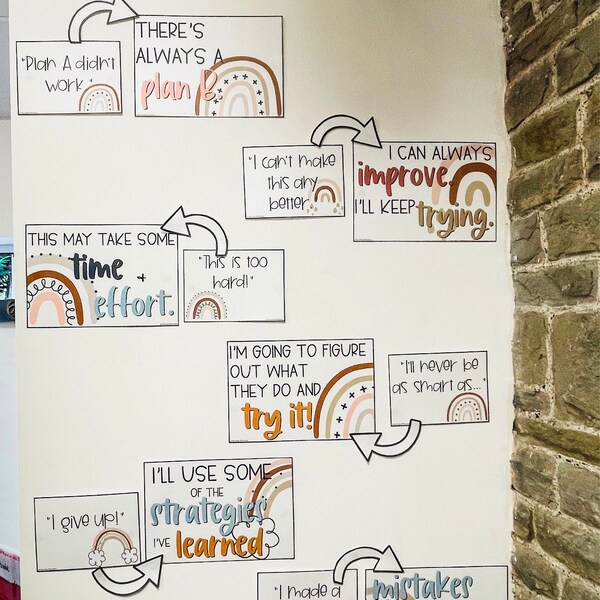 "Plan A didn't
work."
THERE'S
ALWAYS A
plan B.
"I can't make
this any
better."
I CAN ALWAYS
improve.
I'LL KEEP trying.
THIS MAY TAKE SOME
time +
effort.
"This is too
hard!"
I'M GOING TO FIGURE
OUT WHAT
THEY DO AND
try it!
"I'll never be
as smart as..."
"I give up!"
I'LL USE SOME
OF THE
strategies
I'VE learned
"I made a
mistakes